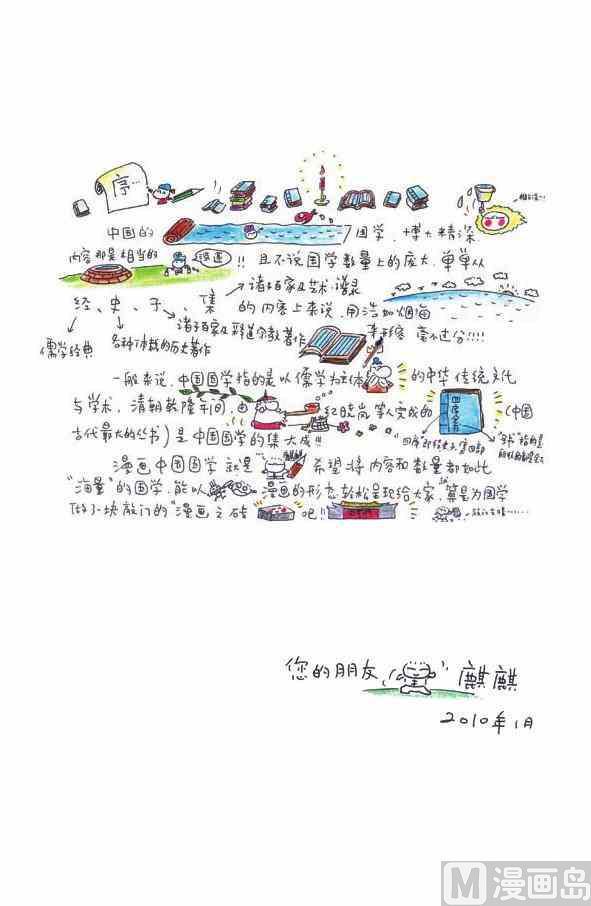 序…
中国的 国学，博大精深
内容那是相当的 !! 且不说国学数量上的庞大，单单从
经、史、子、集 的内容上来说，用浩如烟海
诸子百家及艺术、谱录
来形容 毫不过分!!!!
儒学经典 各种体裁的历史著作 诸子百家及释道宗教著作
一般来说，中国国学指的是以儒学为主体 的中华传统文化
与学术，清朝乾隆年间，由 纪晓岚等人完成的 四库全书 (中国
古代最大的丛书) 是中国国学的集大成!!
漫画中国国学就是 希望将内容和数量都如此
"海量"的国学，能以 漫画的形态轻松呈现给大家，算是为国学
做了块敲门的"漫画之砖 吧!!
您的朋友 麒麒
2010年1月
M漫画岛